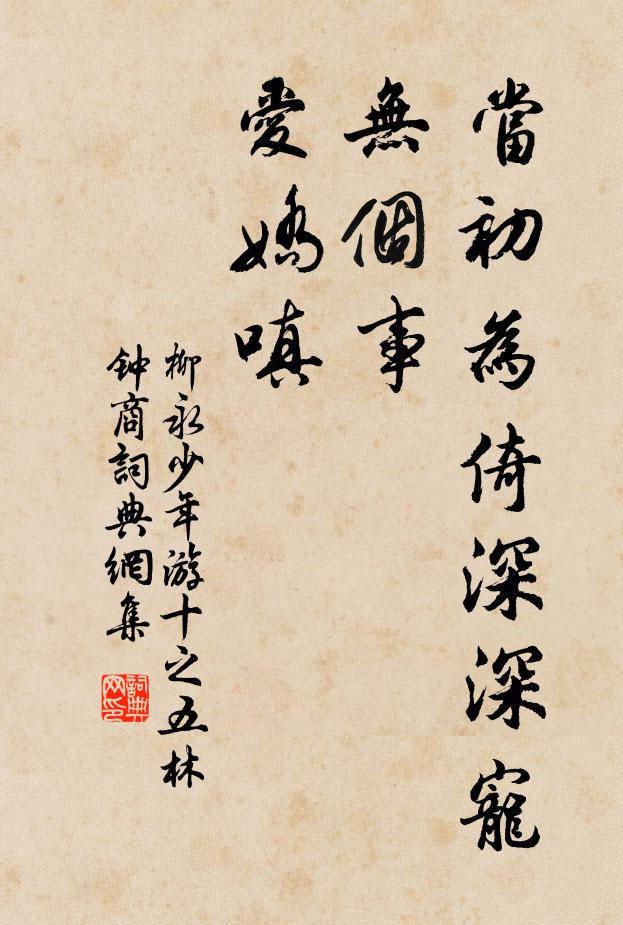 當初為倚深深寵
無個事
愛嬌嗔
柳永少年游十之五林
鈡商詞典網集
詞典
网印